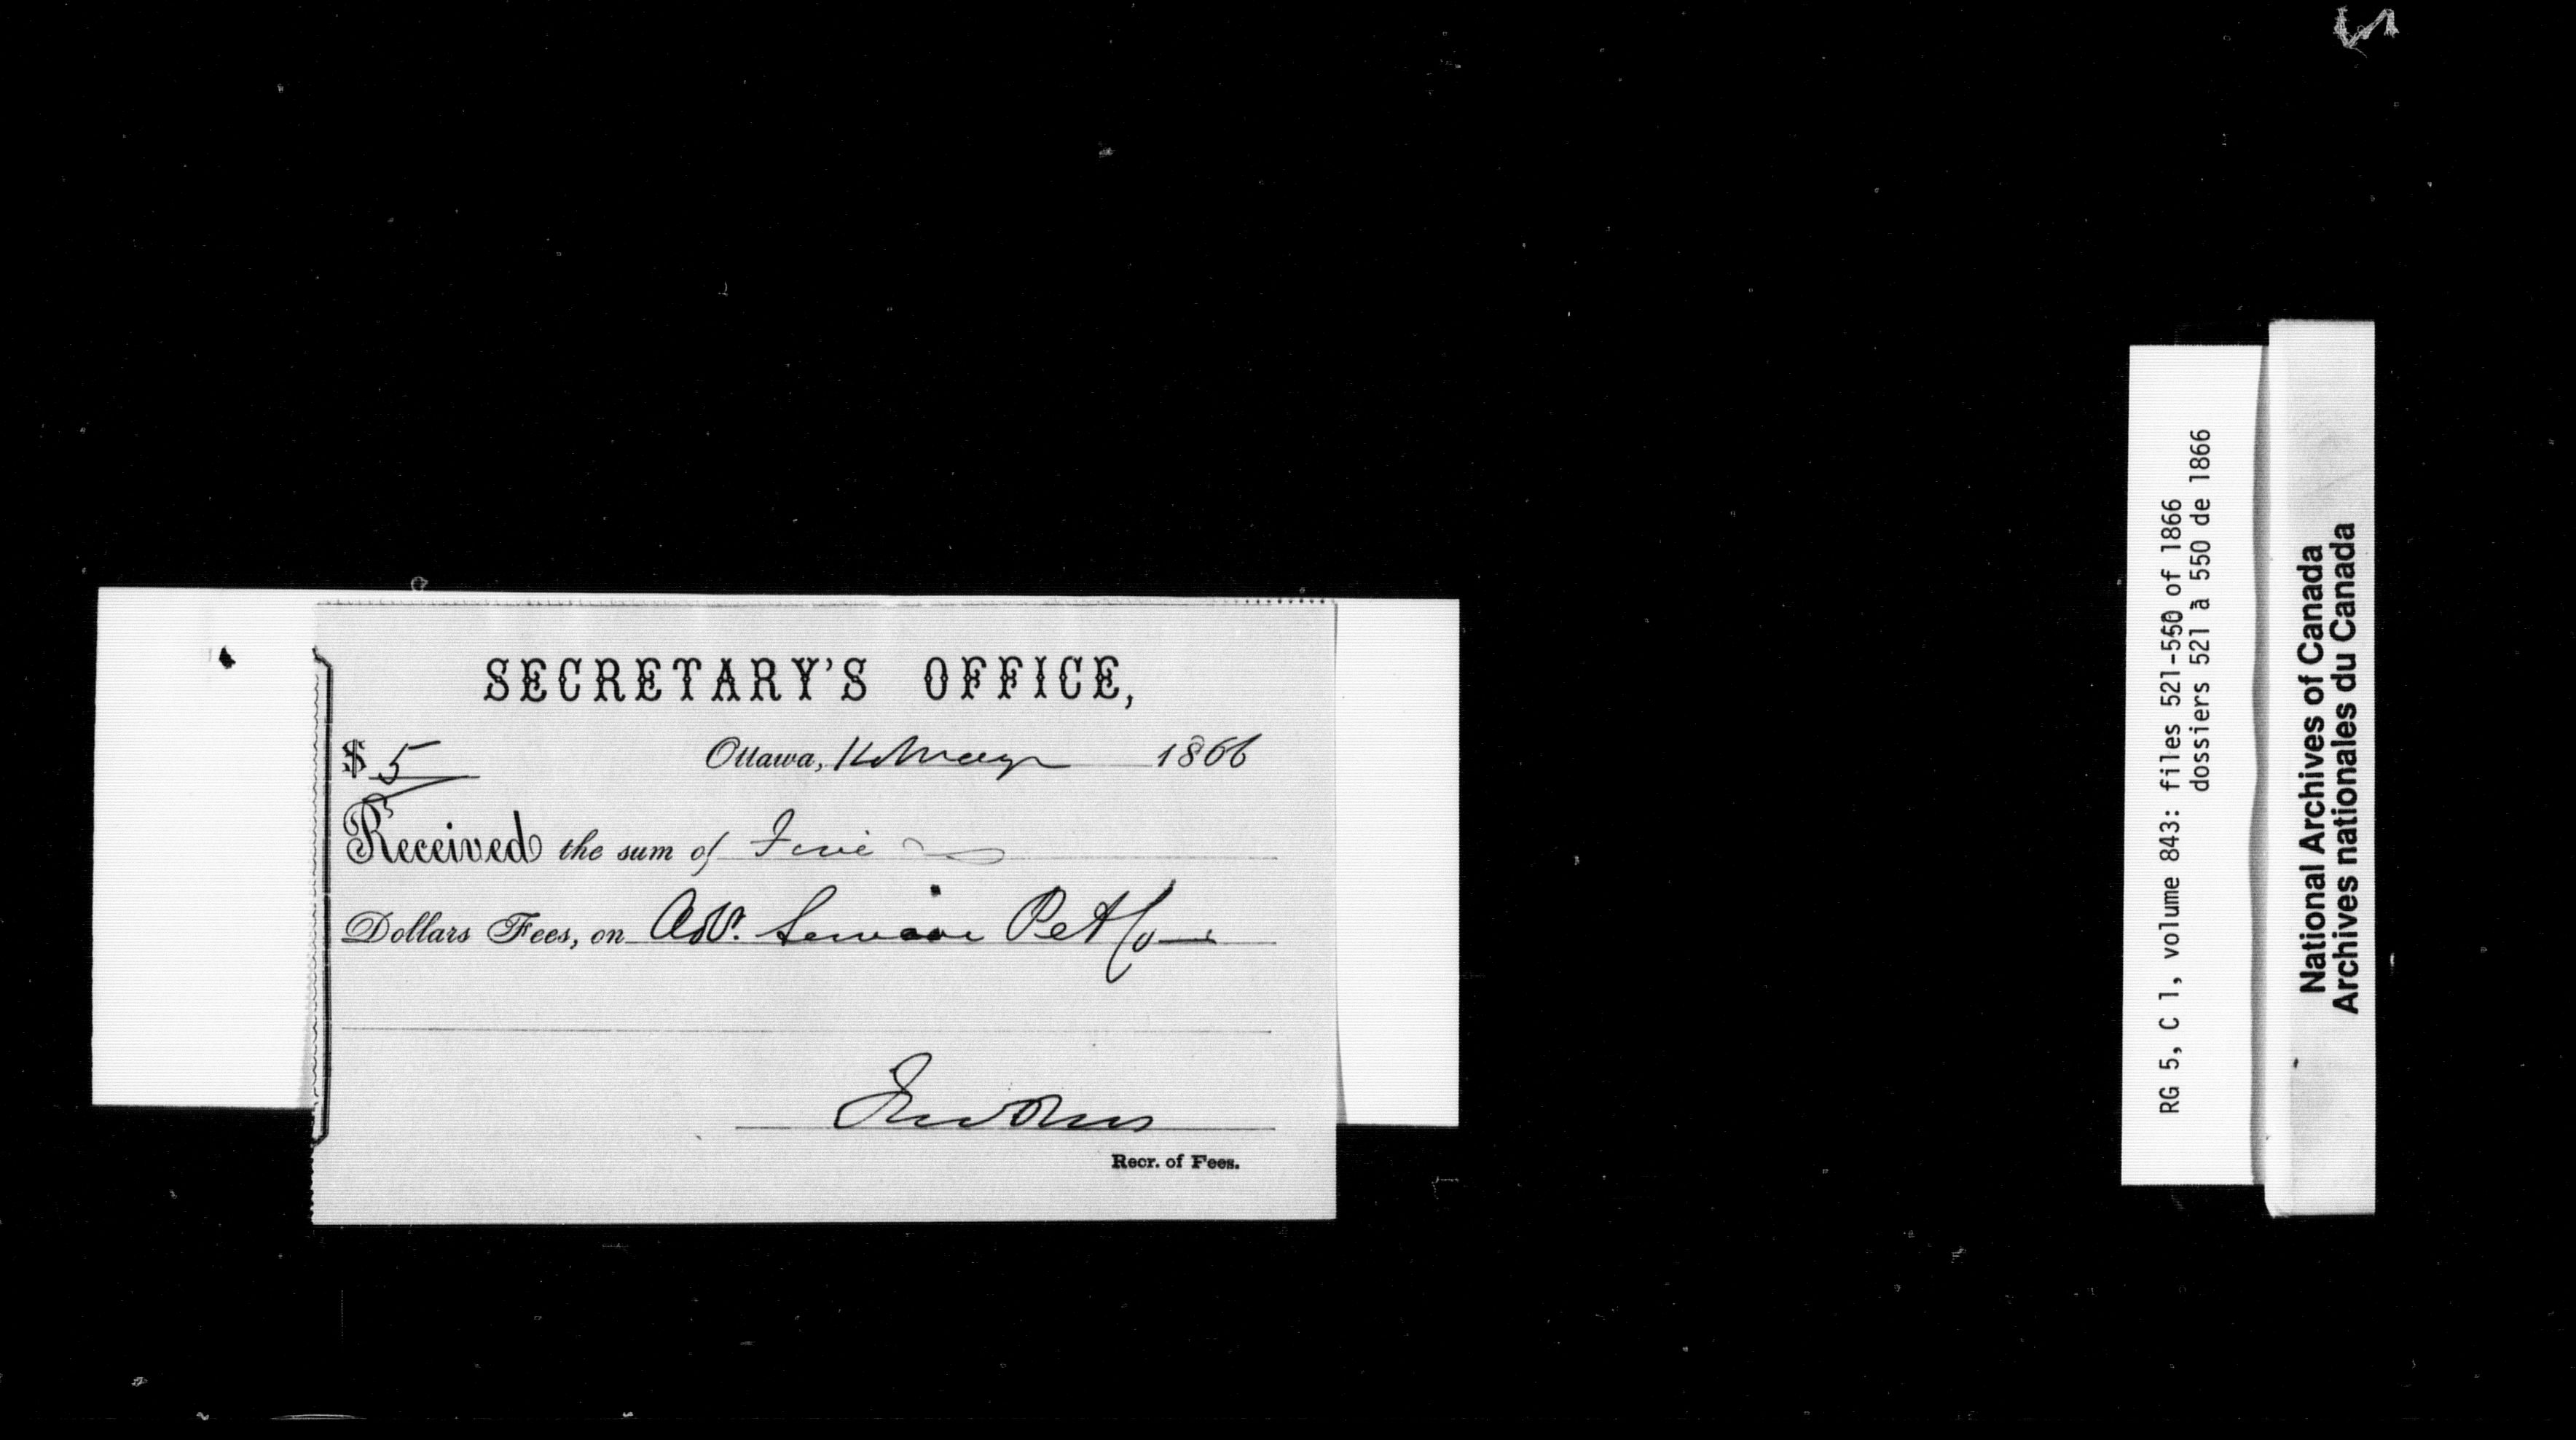 SECRETARY'S OFFICE,
$ 5 Ottawa, May 1866
Received the sum of Five
Dollars Fees, on Pet Co
Recr. of Fees.
RG 5, C 1, volume 843: files 521-550 of 1866
dossiers 521 à 550 de 1866
National Archives of Canada
Archives nationales du Canada